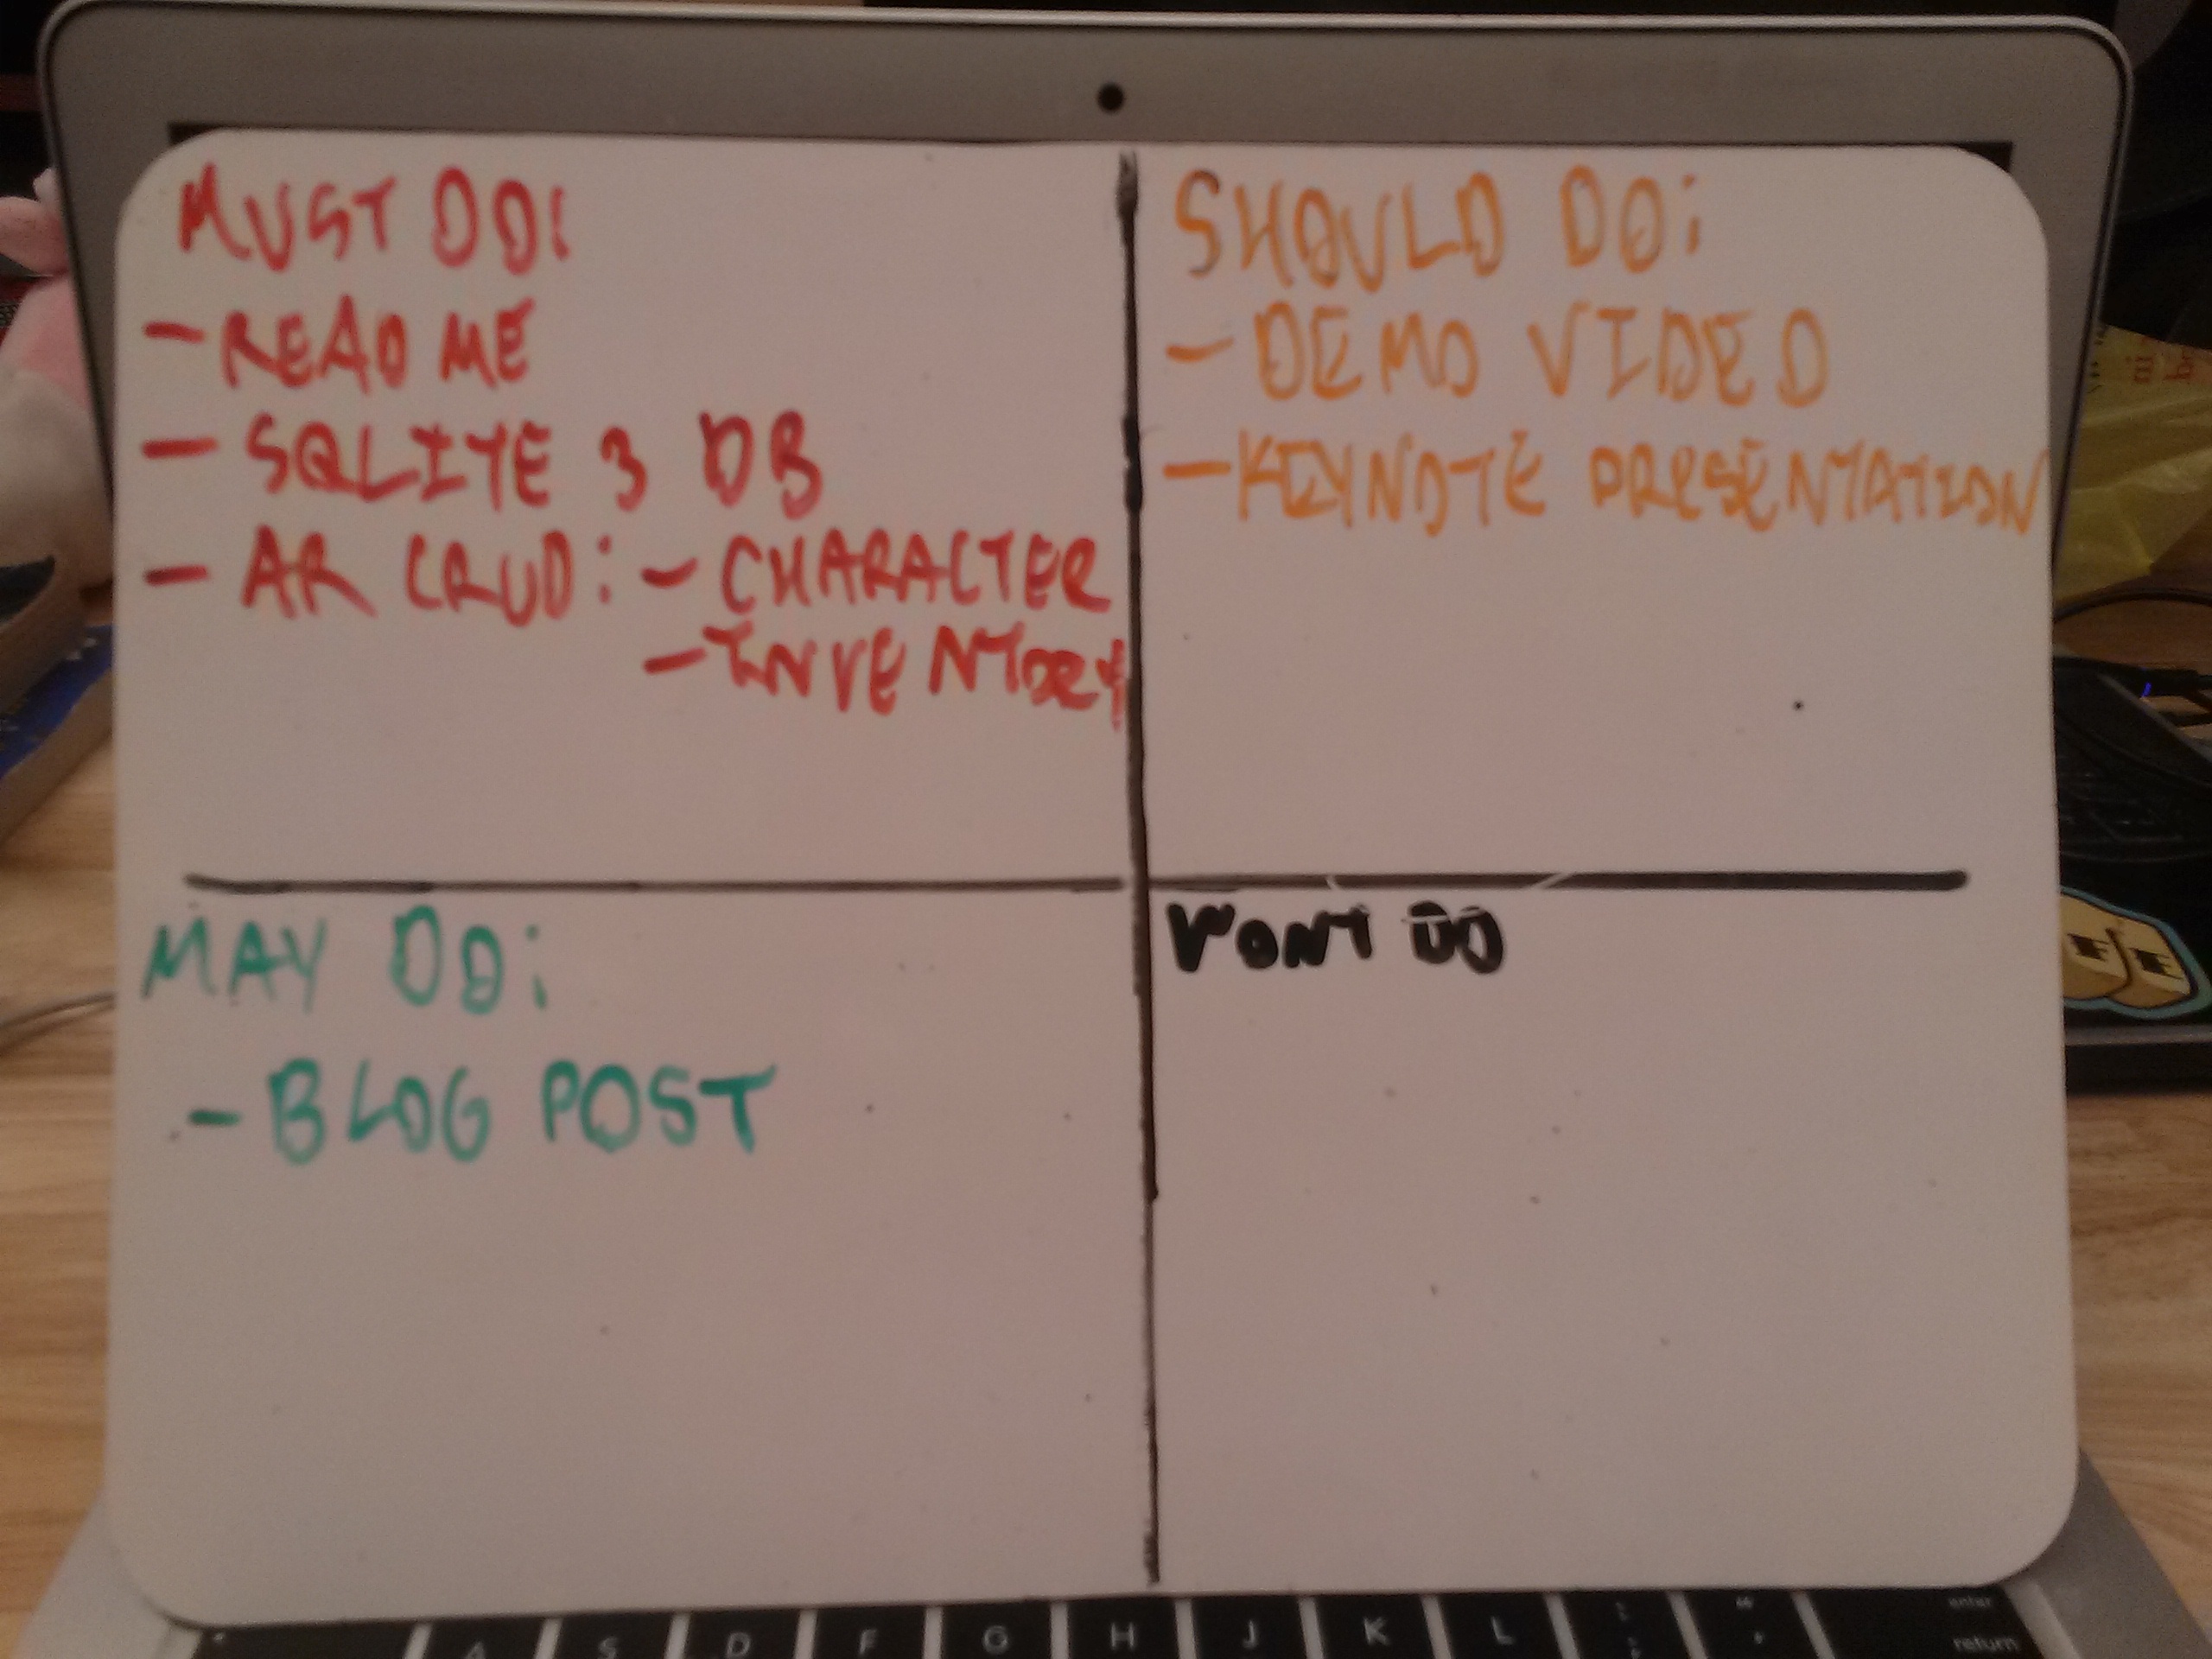 MUST DO:
- READ ME
- SQLITE 3 DB
- AR CRUD: - CHARACTER
- INVENTORY
SHOULD DO:
- DEMO VIDEO
- KEYNOTE PRESENTATION
MAY DO:
- BLOG POST
WONT DO
A S D F G H J K L
enter
return